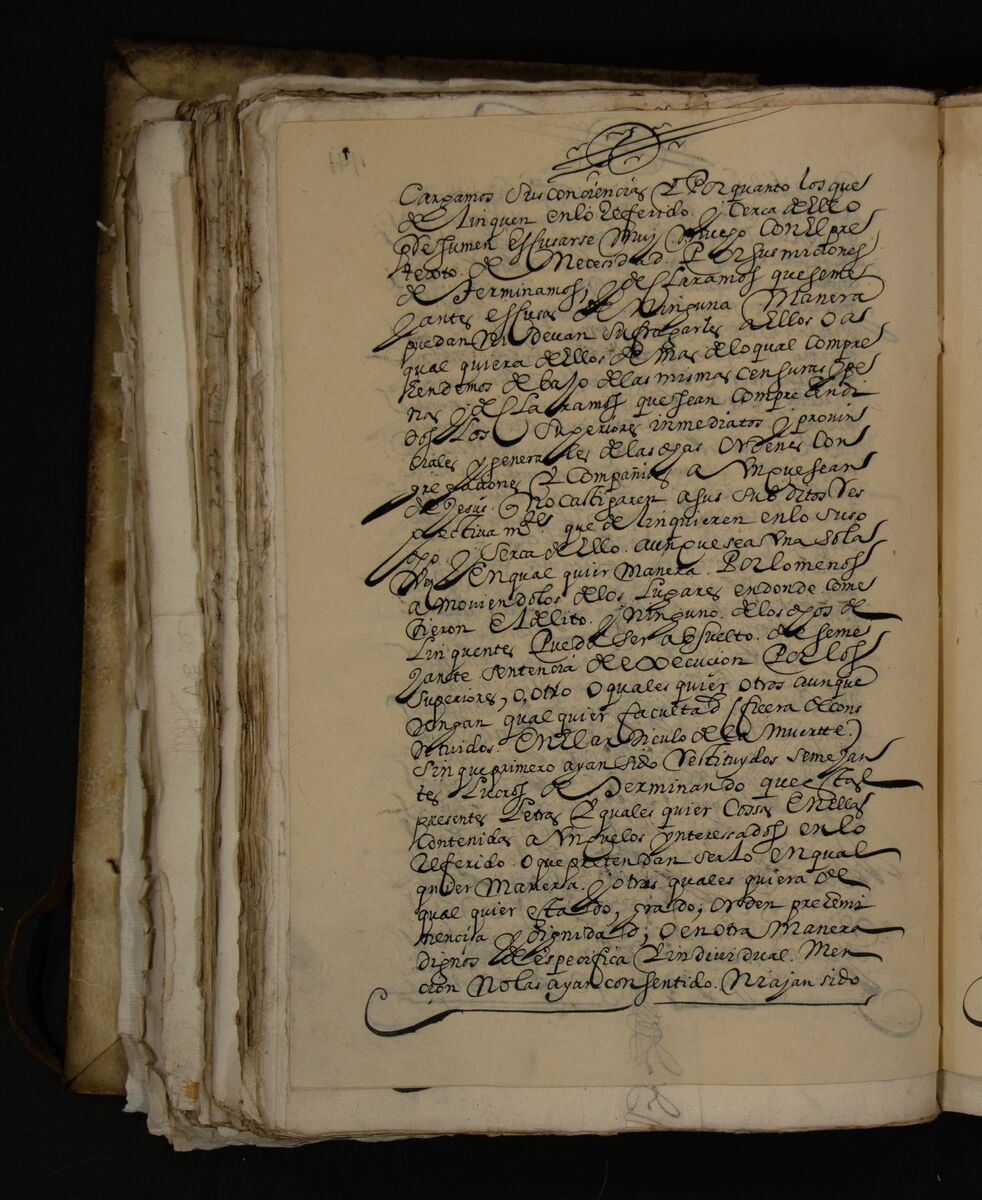 Cargamos sus conciencias, Y Por quanto los que
delinquen en lo Referido. y Cerca de Ello
presumen escusarse Muy Nuego Con El pre
texto de Necesidad. Por sus miciones
determinamos, y declaramos que seme
jantes escusas de Ninguna Manera
puedan Ni devan sufragarles a Ellos o a
qual quiera de Ellos de mas de lo qual Compre
hendemos debajo de las mismas Censuras y pe
nas y declaramos que sean Comprehendi
dos Los Superiores inmediatos y provin
ciales y generales de las dhas Ordenes Con
gregaciones Y Compañia
de Jesus. No castigaren a sus subditos Res
pectivamte que delinquieren en lo suso
dho y Serca de Ello. aunque sea Una sola
Vez y En qual quier Manera. Por lo menos
amoviendolos de los Lugares en donde Come
tieron El delito. y Ninguno de los dhos de
linquentes Pueda ser absuelto. de seme
jante sentencia de execucion Por los
Superiores, o, otro o quales quier otros aunque
tengan qual quier facultad (ficera de Cons
tituidos En El articulo de la Muertte.)
Sin que primero ayan sido Restituydos semejan
tes Lucros determinando que estas
presentes Letras Y quales quier Cossas En Ellas
Contenidas ynteressados en lo
Referido. o que pretendan serlo en qual
quier Manera. y otros quales quiera de
qual quier estado, grado; orden preemi
nencia y dignidad; o en otra Manera
dignos de especifica Y individual. Men
cion No las ayan consentido. Ni ajan sido